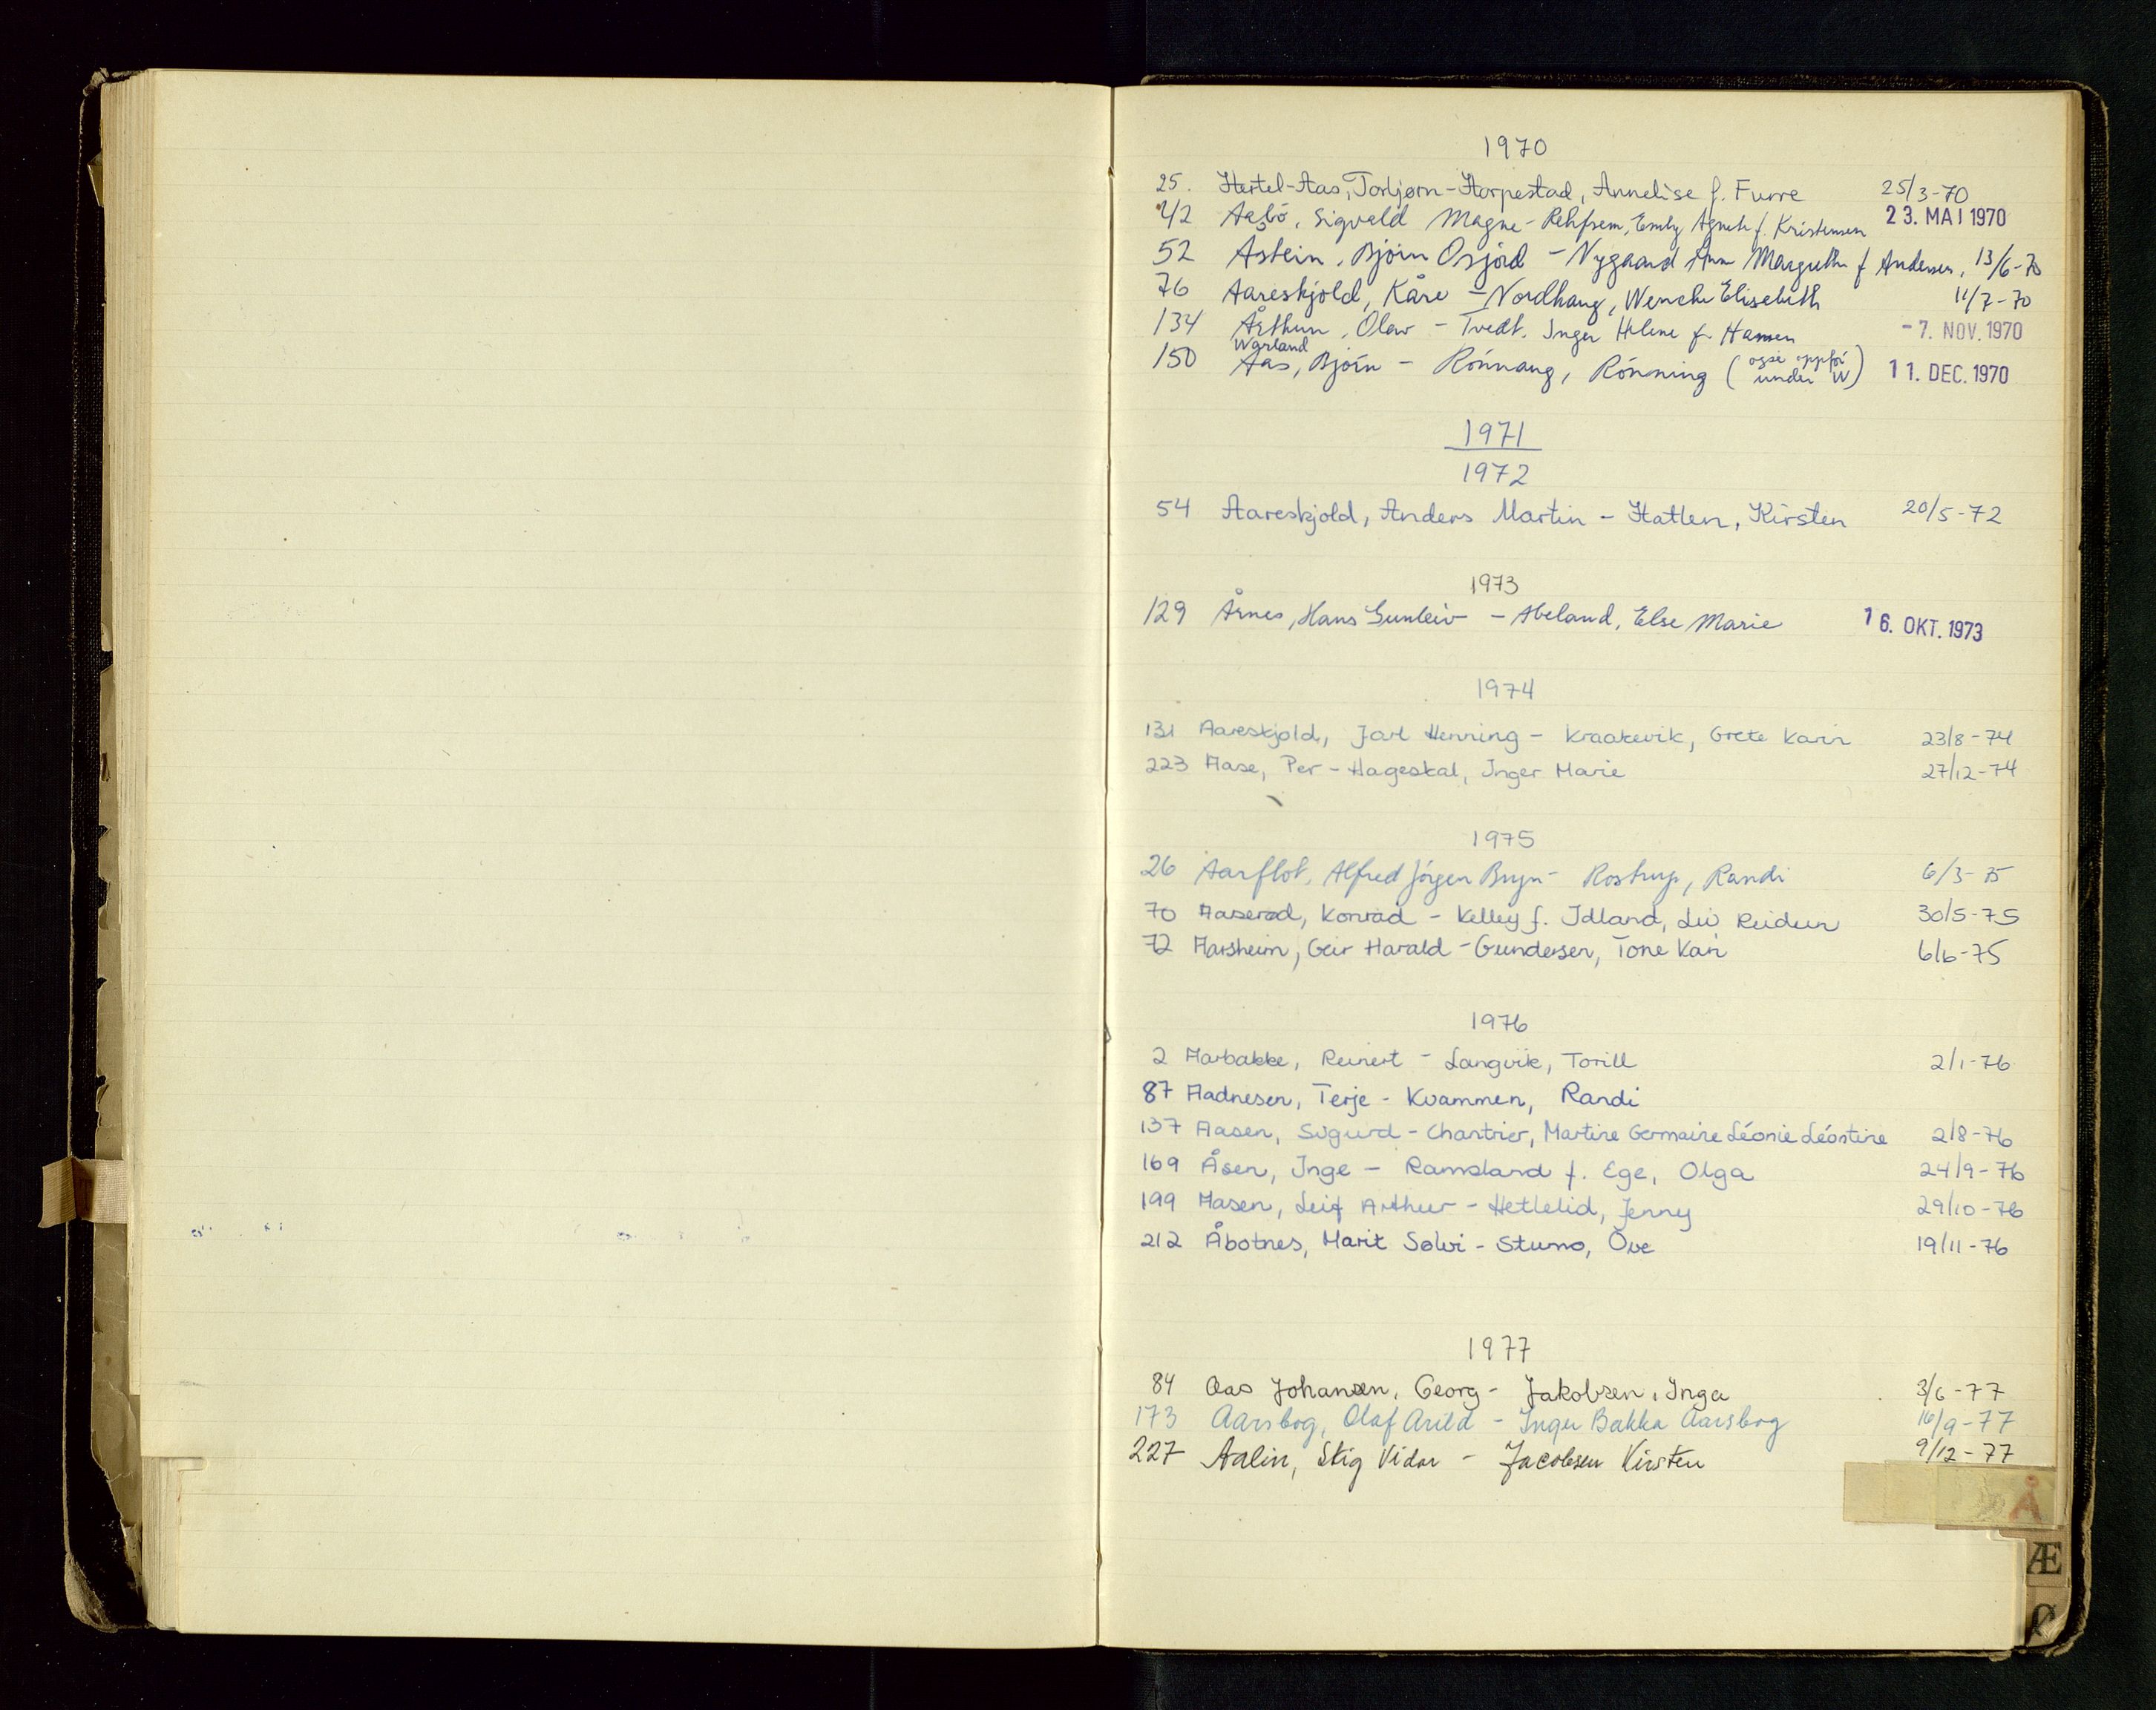 1970
25. Hertel-Aas, Torbjørn - Horpestad, Annelise f. Furre 25/3-70
42 Aasbö, Sigvald Magne - Emly Agnete f. Kristensen 23. MAI 1970
52 Åstein, Björn Osjörd - Nygaard Ann Margrethe f Andersen, 13/6-70
76 Aareskjold, Kåre - Nordhaug, Wenche Elisebeth 11/7-70
134 Årthun, Olav - Tvedt, Inger Helene f. Hansen -7. NOV. 1970
Warland
150 Aas, Björn - Rönnaug, Rönning (også oppför under W) 11. DEC. 1970
1971
1972
54 Aareskjold, Anders Martin - Hatlen, Kirsten 20/5-72
1973
129 Årnes, Hans Gunleiv - Abeland, Else Marie 16. OKT. 1973
1974
131 Aareskjold, Jarl Henning - Kraakevik, Grete Karin 23/8-74
223 Aase, Per - Hageskal, Inger Marie 27/12-74
1975
26 Aarflot, Alfred Jörgen Bryn - Rostrup, Randi 6/3-75
70 Aaserød, Konrad - Kelley f. Idland, Liv Reidun 30/5-75
72 Aarsheim, Geir Harald - Gundersen, Tone Kari 6/6-75
1976
2 Aarbakke, Reinert - Langvik, Torill 2/1-76
87 Aadnesen, Terje - Kvammen, Randi
137 Aasen, Sigurd - Chartrier, Martine Germaine Léonie Léontine 2/8-76
169 Åsen, Inge - Ramsland f. Ege, Olga 24/9-76
199 Aasen, Leif Arthur - Hetlelid, Jenny 29/10-76
212 Åbotnes, Marit Sølvi - Stumo, Ove 19/11-76
1977
84 Aas Johansen, Georg - Jakobsen, Inga 3/6-77
173 Aarsbog, Olaf Arild - Inger Bakka Aarsbog 16/9-77
227 Aalin, Stig Vidar - Jacobsen Kirsten 9/12-77
Å
Æ
Ø